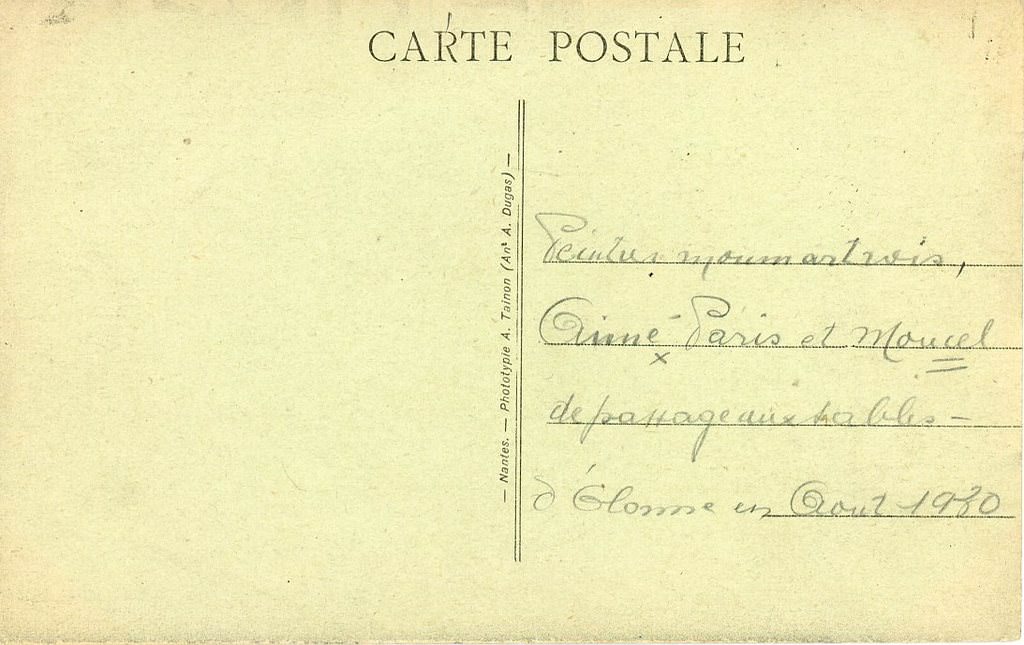 CARTE POSTALE
— Nantes. — Phototypie A. Tainon (Anᵗ A. Dugas) —
Peintres monmartrois,
Aimé Paris et Moucel
de passage aux sables –
d'Olonne en Aout 1920